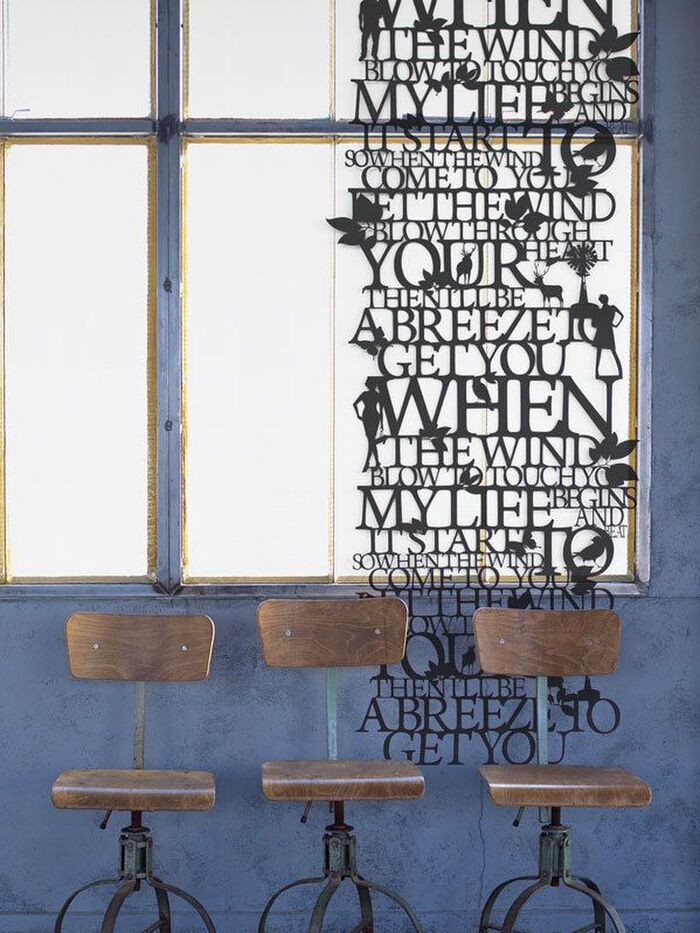 WHEN
THE WIND
BLOW TO TOUCH YO
MY LIFE BEGINS
AND
BEAT
IT START TO
SO WHEN THE WIND
COME TO YOU
LET THE WIND
BLOW THROUGH
YOUR HEART
THEN I'LL BE
A BREEZE TO
GET YOU
WHEN
THE WIND
BLOW TO TOUCH YO
MY LIFE BEGINS
AND
BEAT
IT START TO
SO WHEN THE WIND
COME TO YOU
THE WIND
BLOW
YOU
THEN I'LL BE
A BREEZE TO
GET YOU